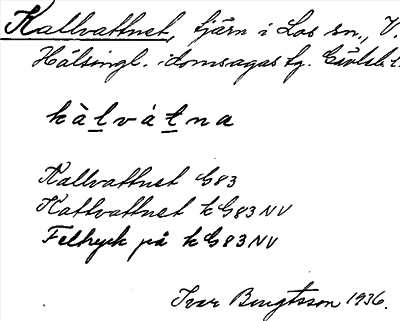 Kallvattnet, tjärn i Los sn., V.
Hälsingl. domsagas tg. Gävleb. l.
kàlvátna
Kallvattnet G83
Kattvattnet k G83 NV
Feltryck på k G83 NV
Ivar Bengtsson 1936.